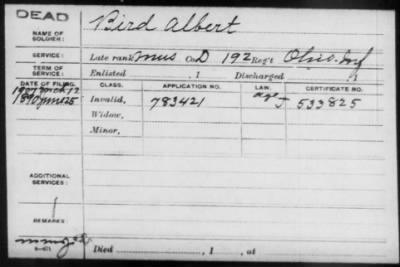 DEAD
NAME OF SOLDIER: Bird Albert
SERVICE: Late rank Mus Co. D 192 Reg't Ohio Inf
TERM OF SERVICE: Enlisted , 1 Discharged , 1
DATE OF FILING. CLASS. APPLICATION NO. LAW. CERTIFICATE NO.
1907 Mch 12
1890 June 25 Invalid, 783421 age J 533825
Widow,
Minor,
ADDITIONAL SERVICES:
REMARKS:
Died , 1 , at